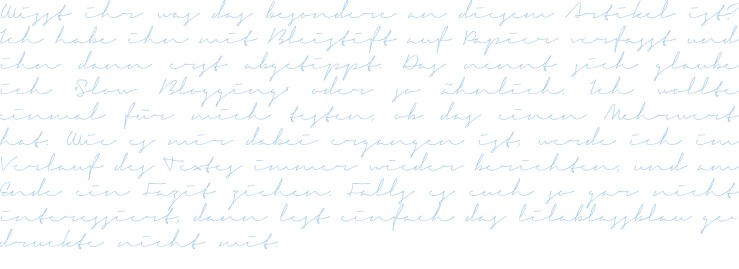 Wisst ihr was das besondere an diesem Artikel ist?
Ich habe ihn mit Bleistift auf Papier verfasst und
ihn dann erst abgetippt. Das nennt sich glaube
ich "Slow Blogging" oder so ähnlich. Ich wollte
einmal für mich testen, ob das einen Mehrwert
hat. Wie es mir dabei ergangen ist, werde ich im
Verlauf des Textes immer wieder berichten, und am
Ende ein Fazit ziehen. Falls es euch so gar nicht
interessiert, dann lest einfach das lilablassblau ge-
druckte nicht mit.